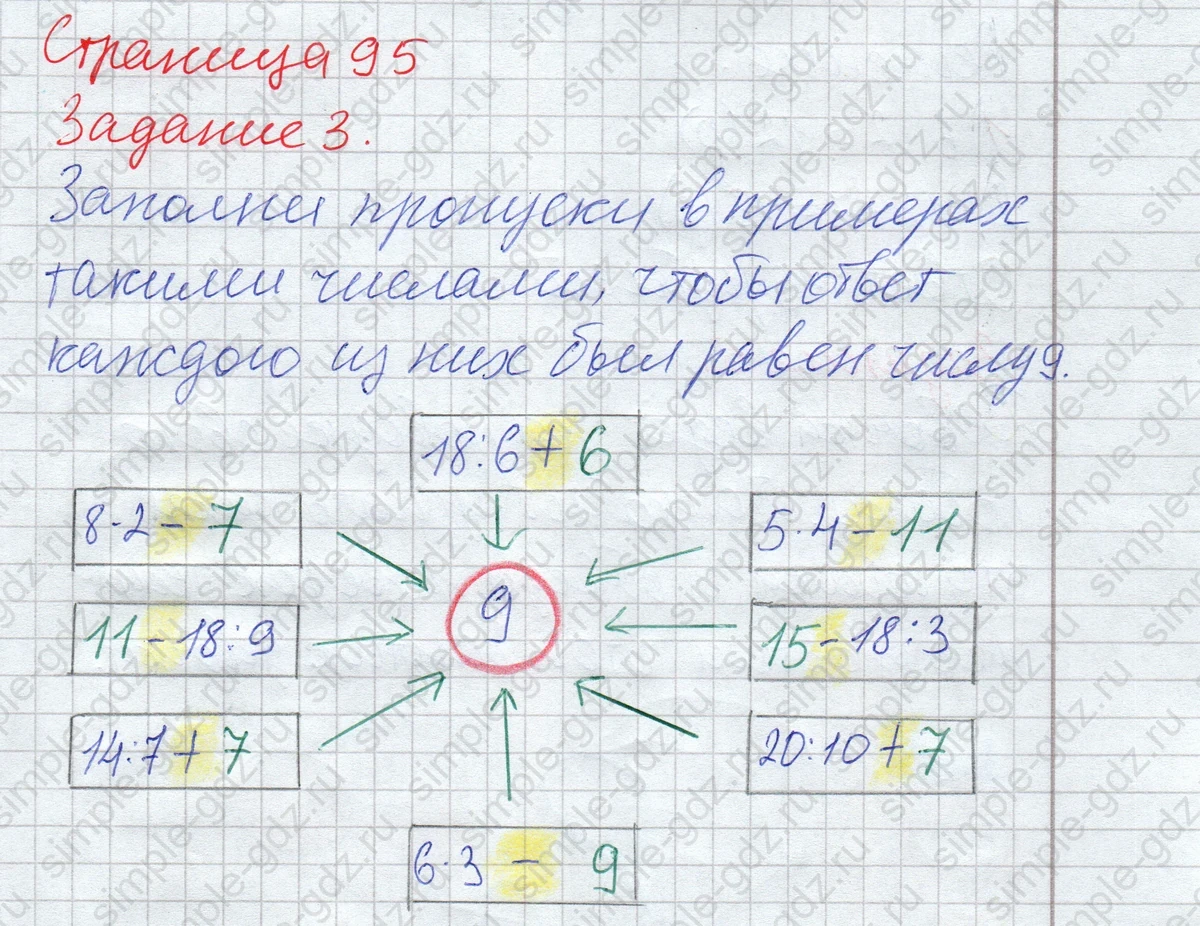 Страница 95
Задание 3.
Заполни пропуски в примерах
такими числами, чтобы ответ
каждого из них был равен числу 9.
18:6+6
8·2-7
5·4-11
9
11-18:9
15-18:3
14:7+7
20:10+7
6·3 - 9
simple-gdz.ru